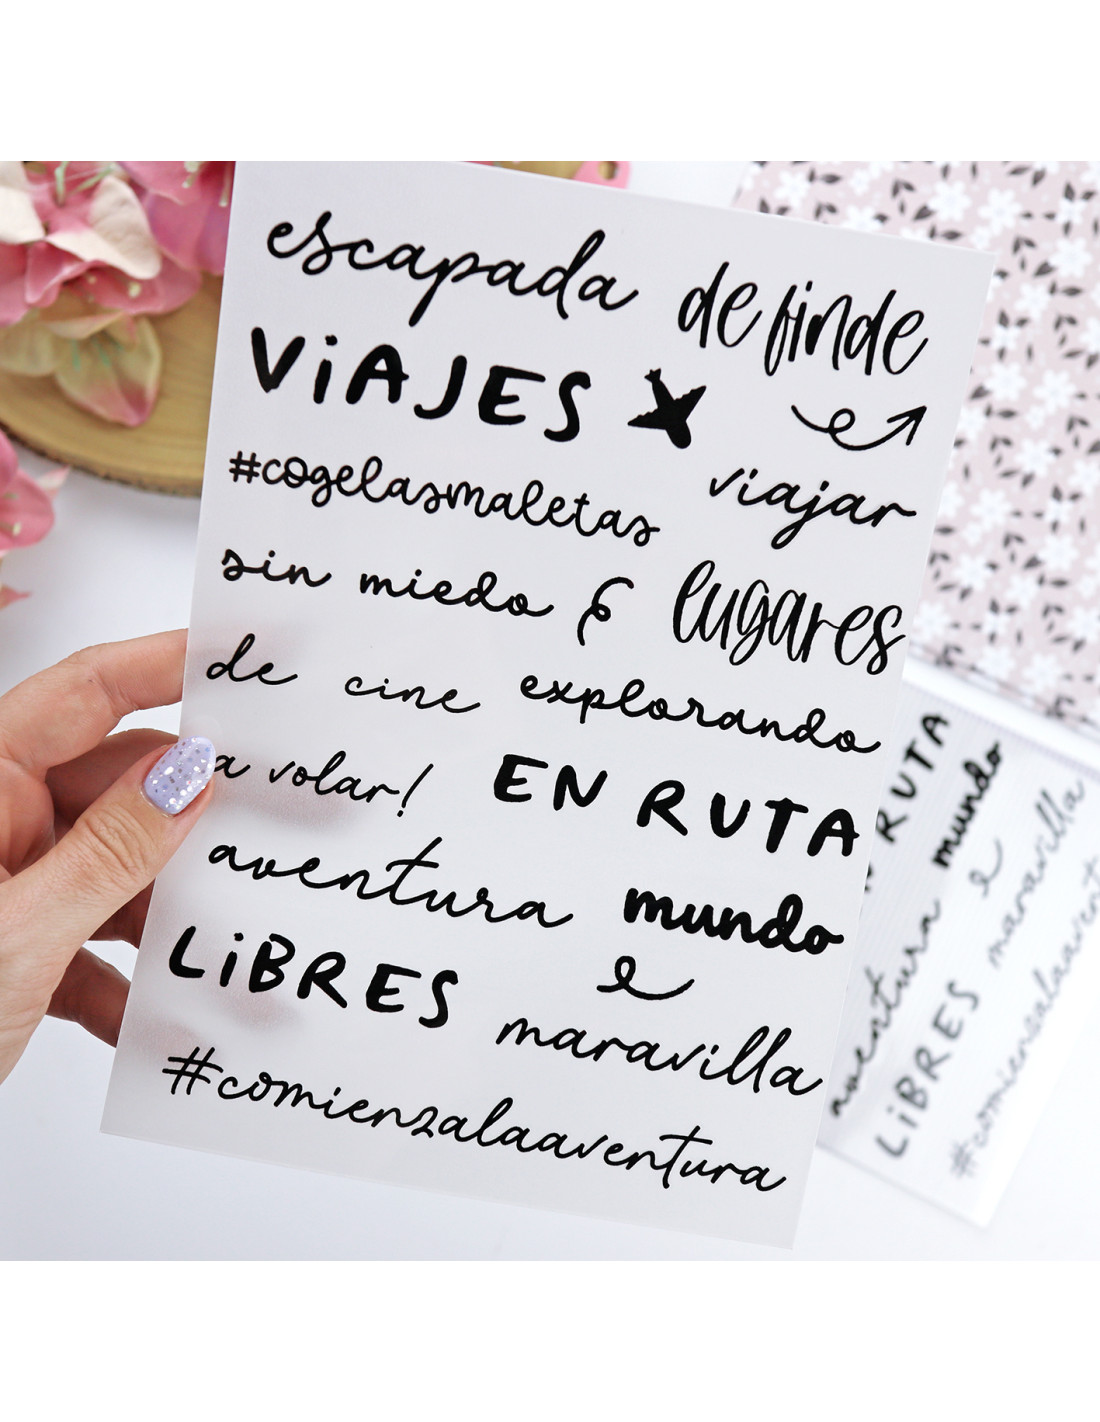 escapada de finde
VIAJES
#cogelasmaletas viajar
sin miedo & lugares
de cine explorando
a volar! EN RUTA
aventura mundo
LIBRES e
maravilla
#comienzalaaventura
RUTA
mundo
aventura e
maravilla
LIBRES
#comienzalaavent